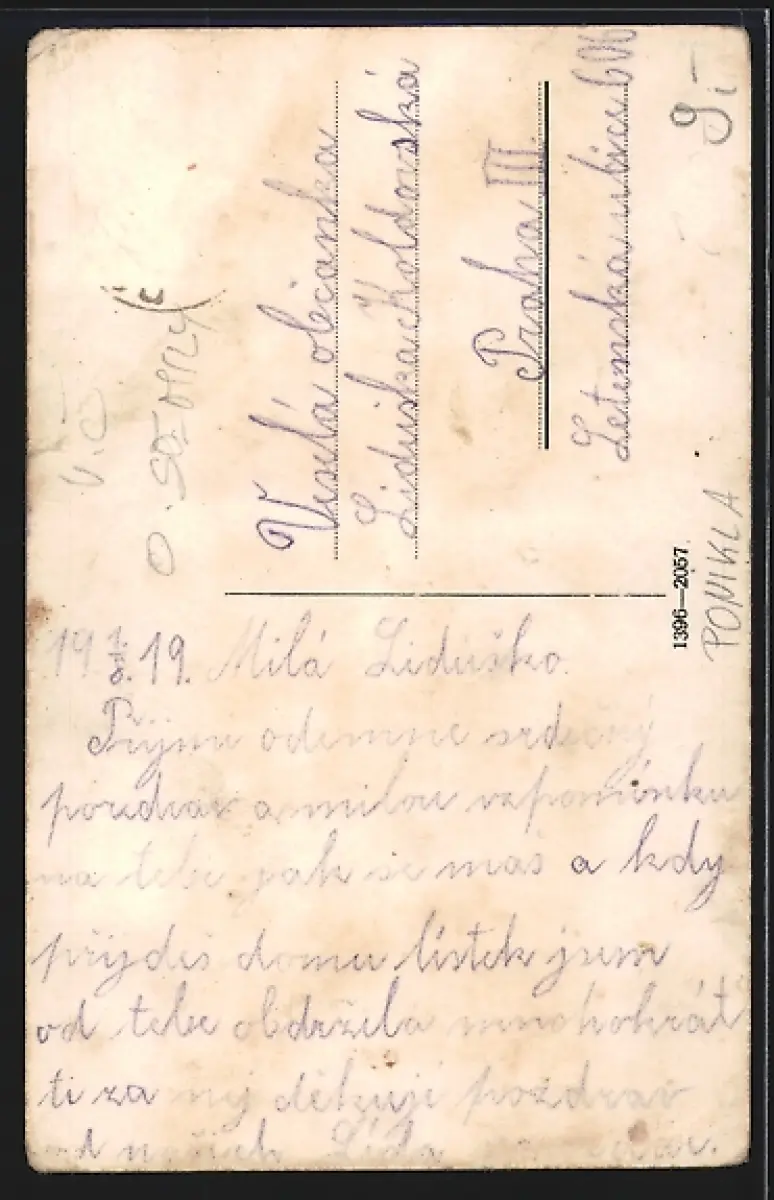 Vzelá občanka
Liduška Koldovská
Praha III.
Letenská ulice 606
PONIKLA
1396—2057
19 1/8. 19. Milá Liduško.
Přijmi odemne srdečný
pozdrav a milou vzpomínku
na tebe jak se maš a kdy
přijdeš domu lístek jsem
od tebe obdržela mnohokrát
ti za něj děkuji pozdrav
od našich Lída